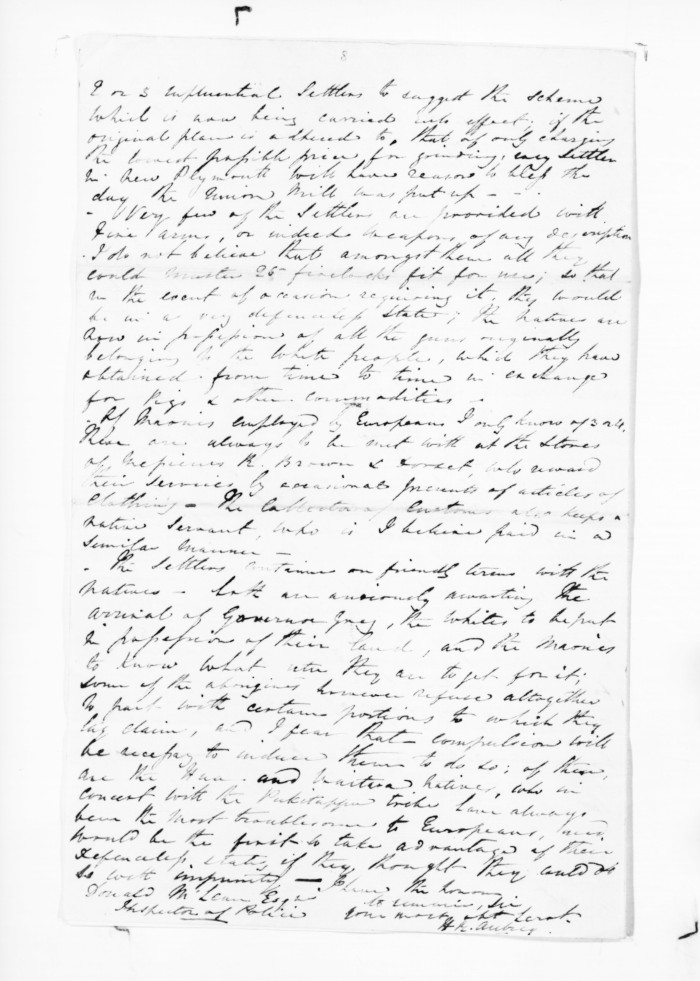 8
2 or 3 influential Settlers to suggest the scheme
which is now being carried into effect; if the
original plan is adhered to, that of only charging
the lowest possible price for grinding, every Settler
in New Plymouth will have reason to bless the
day the Union Mill was put up –
– Very few of the Settlers are provided with
Fire arms, or indeed weapons of any description
. I do not believe that amongst them all they
could muster 25 firelocks fit for use; so that
in the event of occasion requiring it, they would
be in a very defenceless state; the natives are
now in possession of all the guns originally
belonging to the White people, which they have
obtained from time to time in exchange
for Pigs & other commodities –
. Of Maories employed by Europeans I only know of 3 or 4.
These are always to be met with at the Stores
of Messieurs R. Brown & Dorset, who reward
their services by occasional presents of articles of
Clothing – The Collector of Customs also keeps a
native Servant, who is I believe paid in a
similar manner –
. The Settlers continue on friendly terms with the
natives – both are anxiously awaiting the
arrival of Governor Grey, the Whites to be put
in possession of their land, and the Maories
to know what utu they are to get for it;
some of the aborigines however refuse altogether
to part with certain portions to which they
lay claim, and I fear that compulsion will
be necessay to induce them to do so; of these,
are the Hua and Waitera natives, who in
concert with the Puketappu tribe have always
been the most troublesome to Europeans, and
would be the first to take advantage of their
Defenceless state, if they thought they could do
so with impunity – I have the honor
Donald McLean Esqr to remain, Sir
Inspector of Police your most obt Servt.
H R. Aubrey.